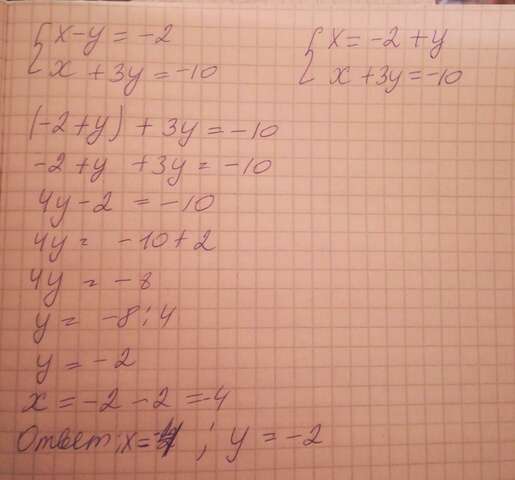 { x - y = -2
{ x + 3y = -10
{ x = -2 + y
{ x + 3y = -10
(-2 + y) + 3y = -10
-2 + y + 3y = -10
4y - 2 = -10
4y = -10 + 2
4y = -8
y = -8 : 4
y = -2
x = -2 - 2 = -4
Ответ: x = -4 ; y = -2